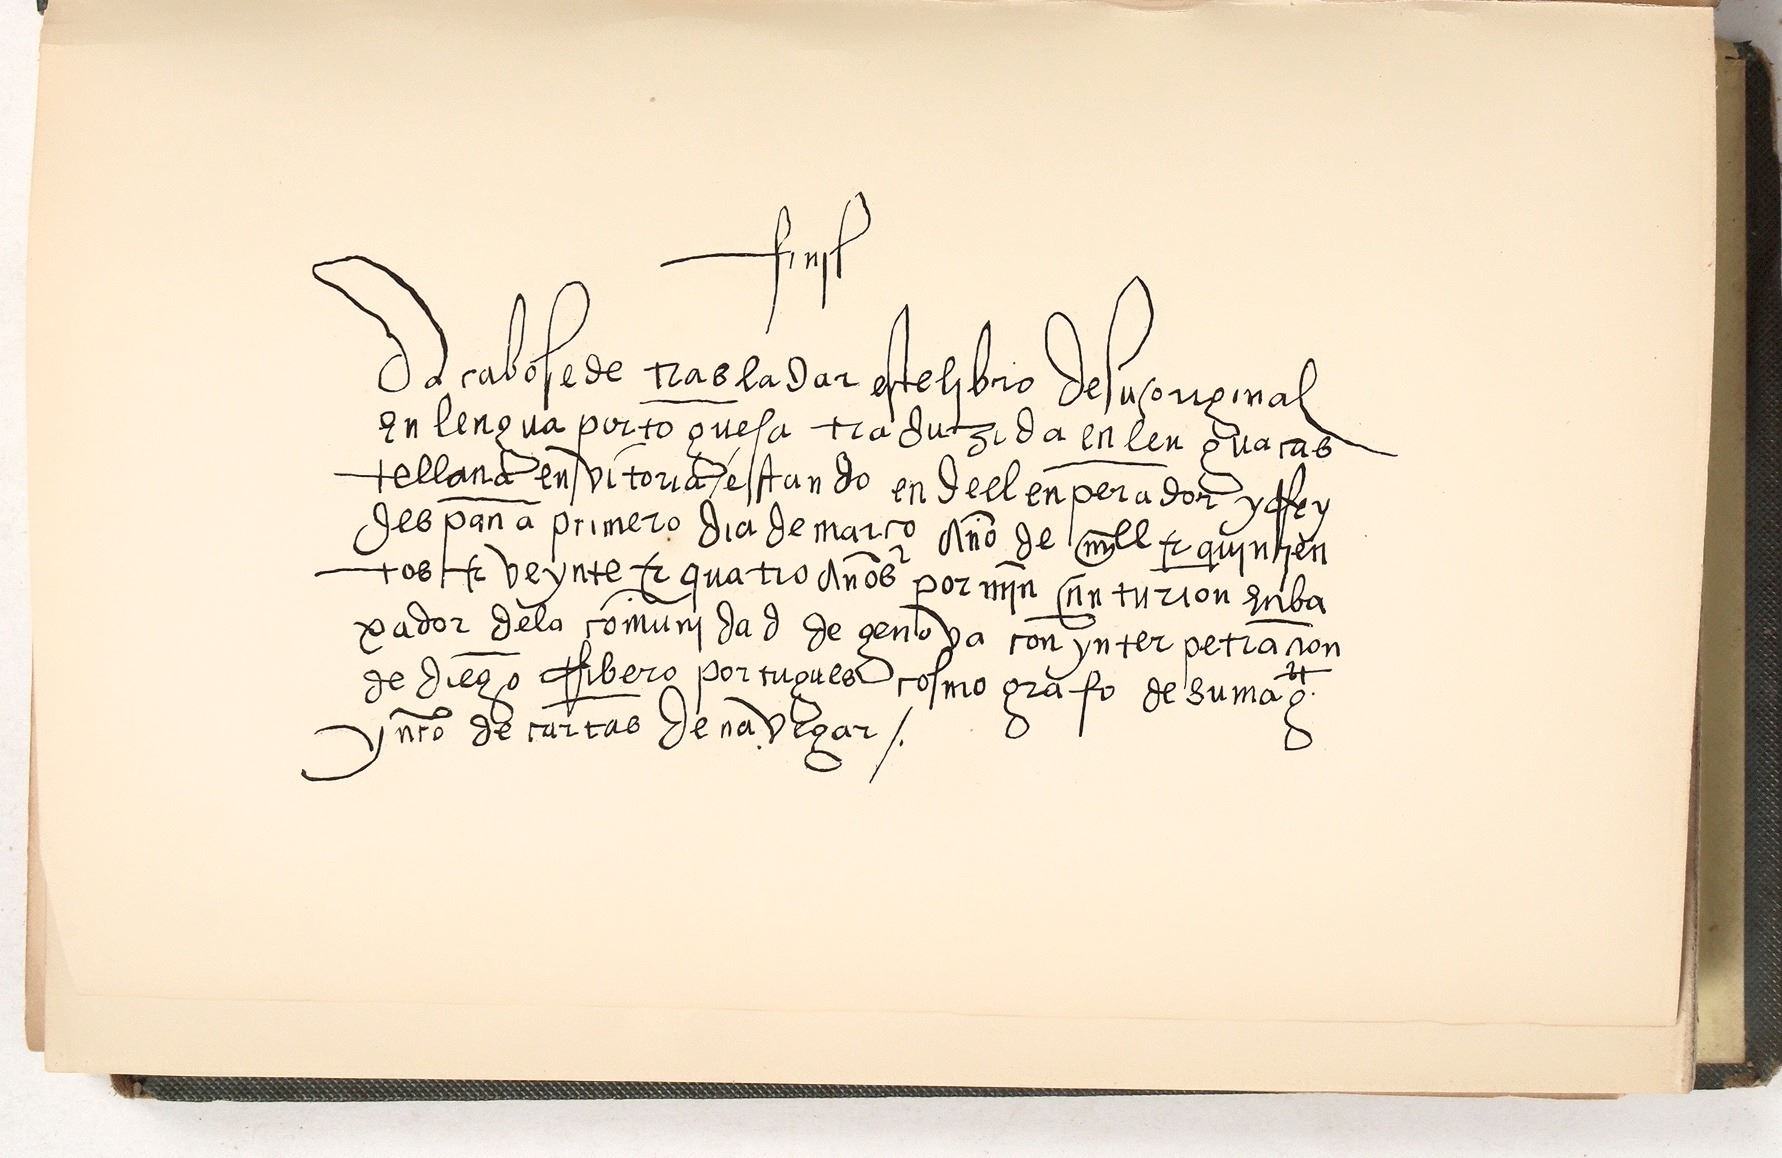 finis
Acabose de trasladar este lybro de su original
en lengua portoguesa traduzida en lengua cas
tellana en vitoria estando ende el enperador y Rey
despaña primero dia de março año de mill & quinjen
tos & veynte & quatro años por mjn centurion enba
xador dela comunjdad de genova con ynterpetraçion
de diego Ribero portugues cosmografo de su magt.
y mro de cartas de navegar /.